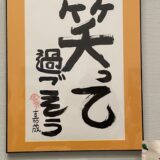 笑って
過ごそう